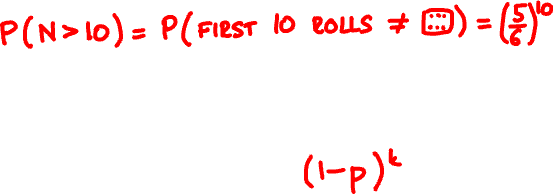 P(N>10) = P(FIRST 10 ROLLS ≠ ⚅) = (5/6)^10
(1-p)^k